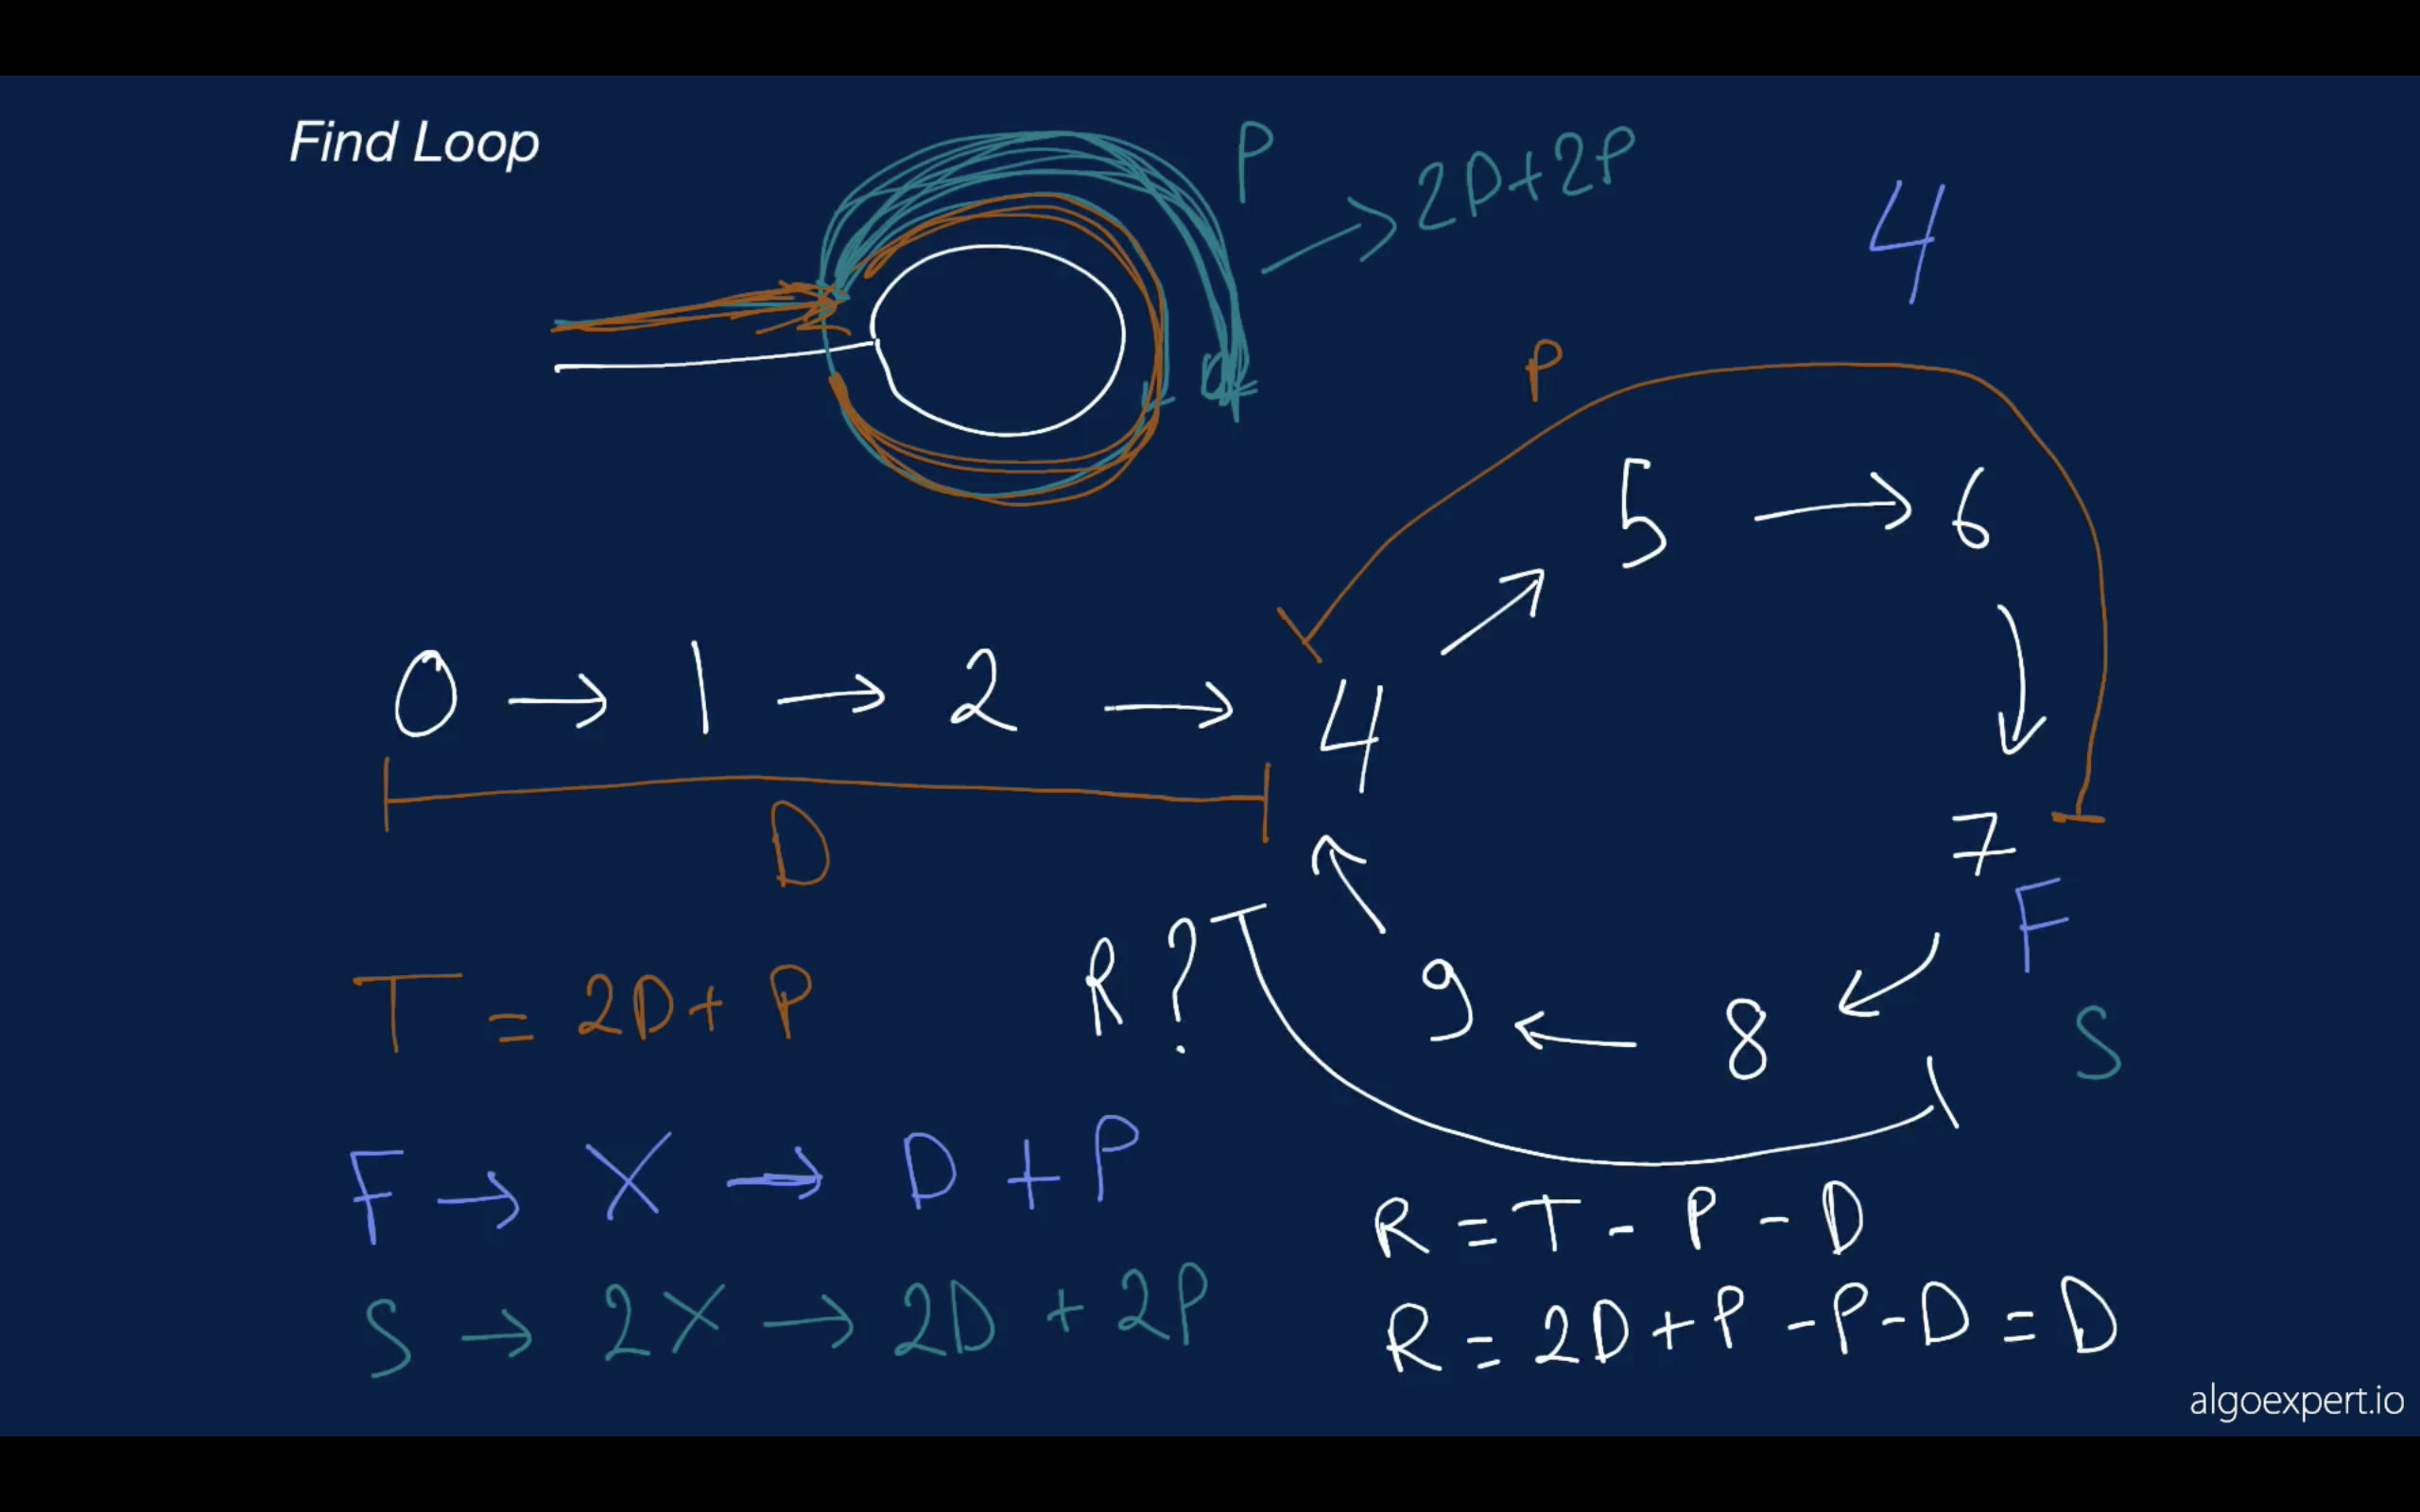 Find Loop
P
→ 2D+2P
4
P
5 → 6
0 → 1 → 2 → 4
7
D
F
R?
9 ← 8
S
T = 2D + P
F → X → D + P
R = T - P - D
S → 2X → 2D + 2P
R = 2D + P - P - D = D
algoexpert.io